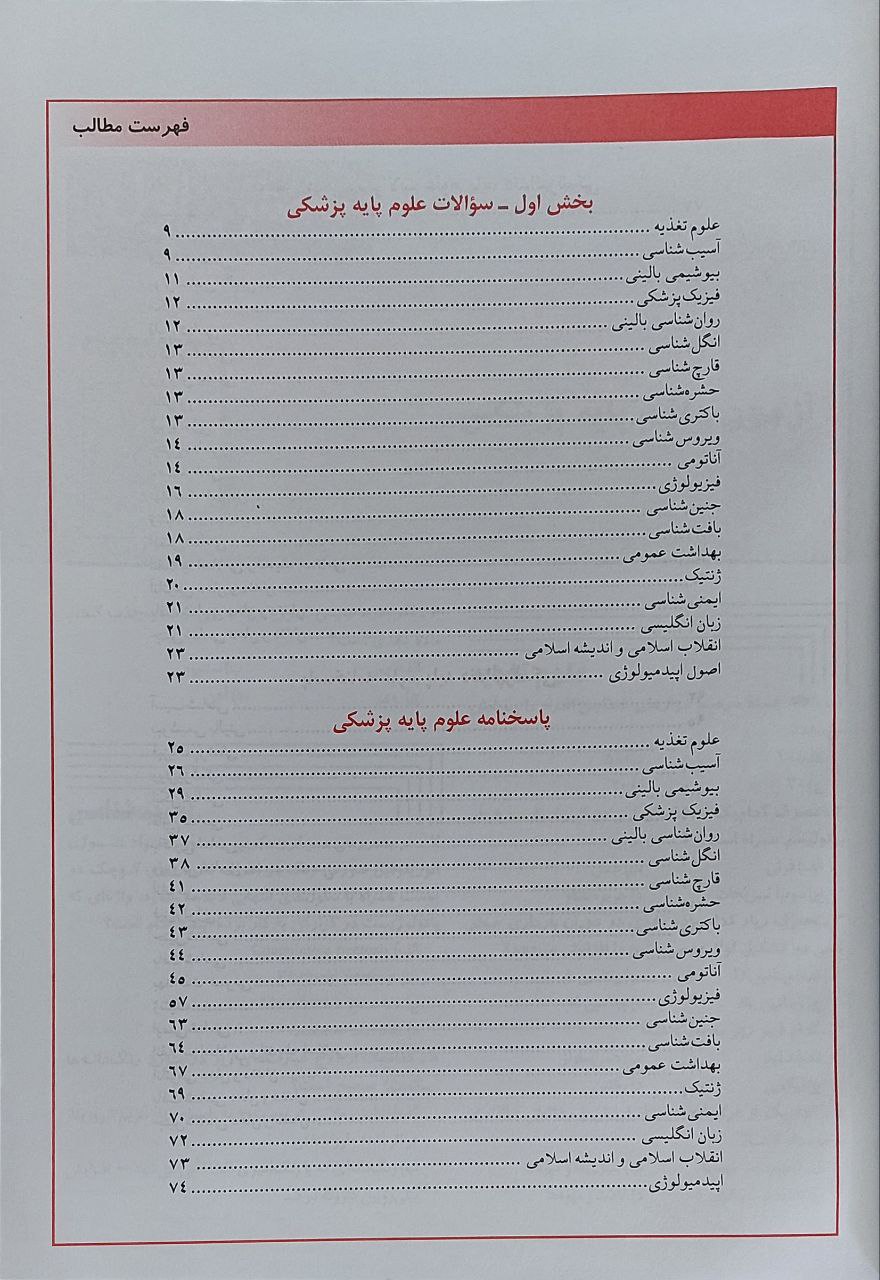 فهرست مطالب
بخش اول ـ سؤالات علوم پایه پزشکی
علوم تغذیه ........ ۹
آسیب‌شناسی ........ ۹
بیوشیمی بالینی ........ ۱۱
فیزیک‌پزشکی ........ ۱۲
روان‌شناسی بالینی ........ ۱۲
انگل‌شناسی ........ ۱۳
قارچ‌شناسی ........ ۱۳
حشره‌شناسی ........ ۱۳
باکتری‌شناسی ........ ۱۳
ویروس‌شناسی ........ ۱٤
آناتومی ........ ۱٤
فیزیولوژی ........ ۱٦
جنین‌شناسی ........ ۱۸
بافت‌شناسی ........ ۱۸
بهداشت عمومی ........ ۱۹
ژنتیک ........ ۲۰
ایمنی‌شناسی ........ ۲۱
زبان انگلیسی ........ ۲۱
انقلاب اسلامی و اندیشه اسلامی ........ ۲۳
اصول اپیدمیولوژی ........ ۲۳
پاسخنامه علوم پایه پزشکی
علوم تغذیه ........ ۲۵
آسیب‌شناسی ........ ۲٦
بیوشیمی بالینی ........ ۲۹
فیزیک پزشکی ........ ۳۵
روان‌شناسی بالینی ........ ۳۷
انگل‌شناسی ........ ۳۸
قارچ‌شناسی ........ ٤۱
حشره‌شناسی ........ ٤۲
باکتری‌شناسی ........ ٤۳
ویروس‌شناسی ........ ٤٤
آناتومی ........ ٤۵
فیزیولوژی ........ ۵۷
جنین‌شناسی ........ ٦۳
بافت‌شناسی ........ ٦٤
بهداشت عمومی ........ ٦۷
ژنتیک ........ ٦۹
ایمنی‌شناسی ........ ۷۰
زبان انگلیسی ........ ۷۲
انقلاب اسلامی و اندیشه اسلامی ........ ۷۳
اپیدمیولوژی ........ ۷٤